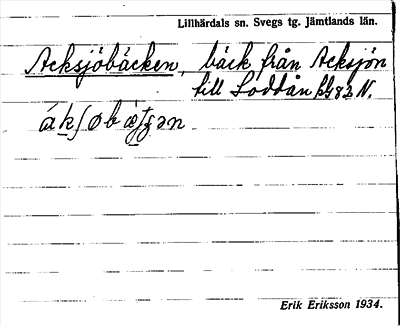 Lillhärdals sn. Svegs tg. Jämtlands län.
Acksjöbäcken, bäck från Acksjön
till Loddån N.
Erik Eriksson 1934.